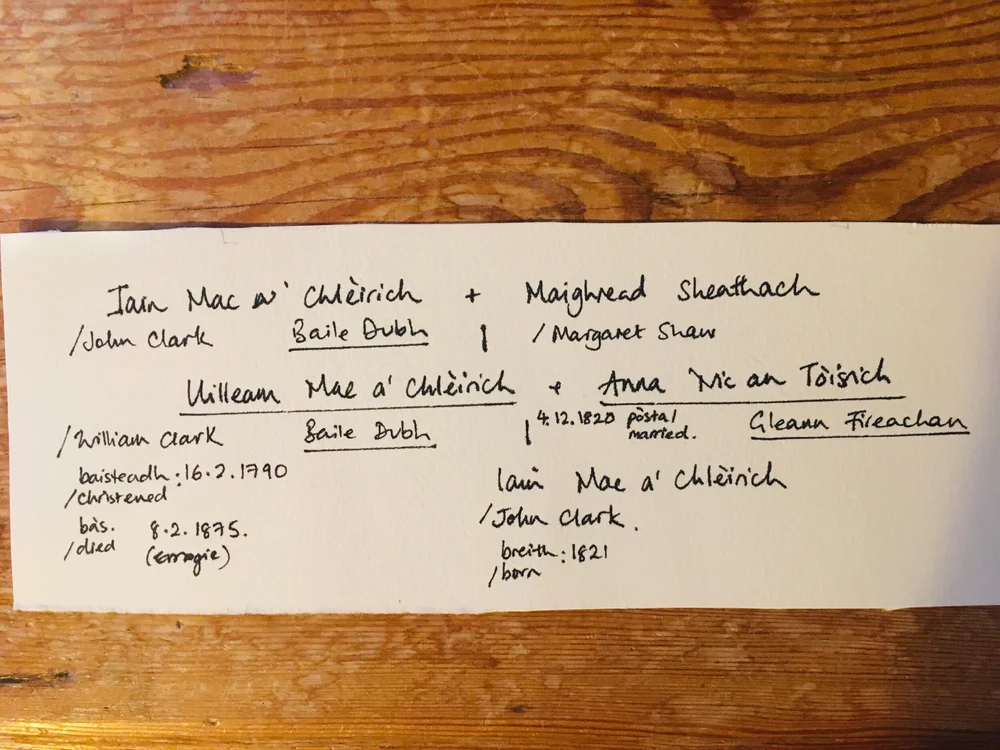 Iain Mac a' Chlèirich + Maighread Sheathach
/John Clark Baile Dubh | /Margaret Shaw
Uilleam Mac a' Chlèirich + Anna Nic an Tòisich
/William Clark Baile Dubh | 4.12.1820 pòsta/ married. Gleann Fireachan
baisteadh: 16.2.1790
/christened
Iain Mac a' Chlèirich
/John Clark.
bàs. 8.2.1875.
/died (Errogie)
breith: 1821
/born